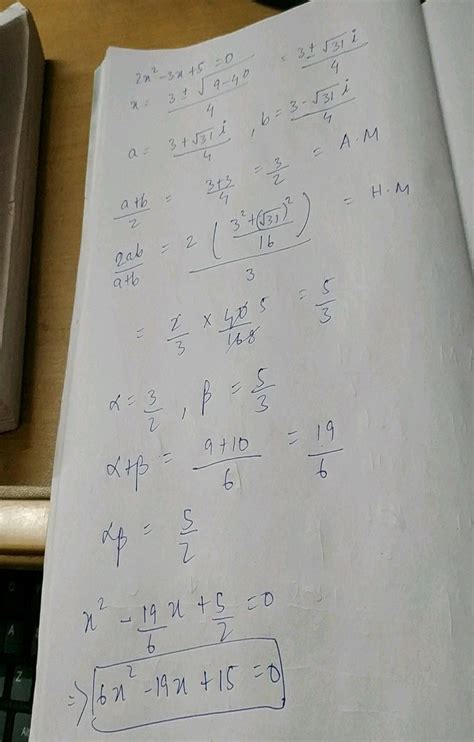 2x² - 3x + 5 = 0
x = (3 ± √(9-40))/4 = (3 ± √31 i)/4
a = (3 + √31 i)/4 , b = (3 - √31 i)/4
(a+b)/2 = (3+3)/4 = 3/2 = A.M
2ab/(a+b) = 2((3² + (√31)²)/16)/3 = H.M
= 2/3 × 40/16 5 8 = 5/3
α = 3/2 , β = 5/3
α+β = (9+10)/6 = 19/6
αβ = 5/2
x² - 19/6 x + 5/2 = 0
⇒ 6x² - 19x + 15 = 0